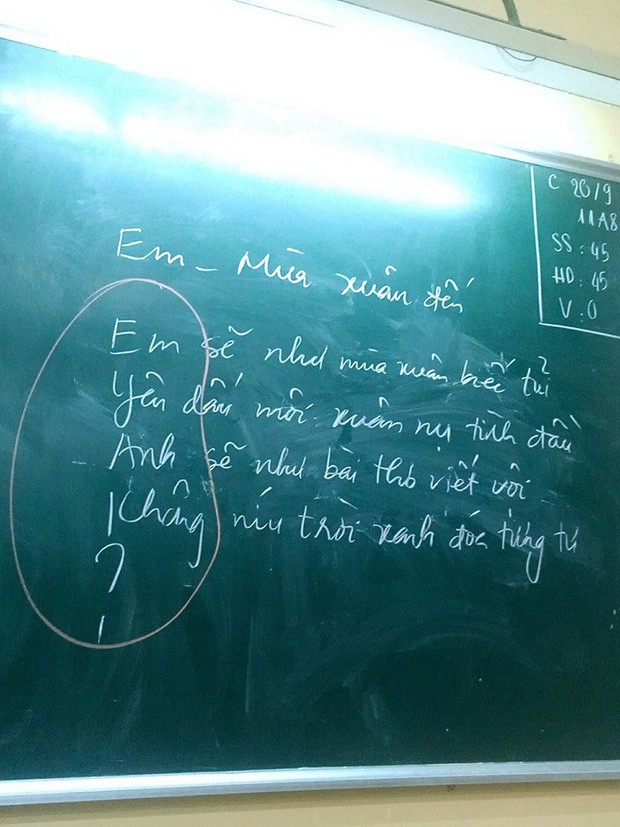 Em - Mùa xuân đến
Em sẽ như mùa xuân biếc tủ
Yên dấu môi xuân nụ tình đầu
- Anh sẽ như bài thơ viết vội
Không níu trời xanh đóa tương tư
?
C 2019
11A8
SS : 45
HD : 45
V : 0